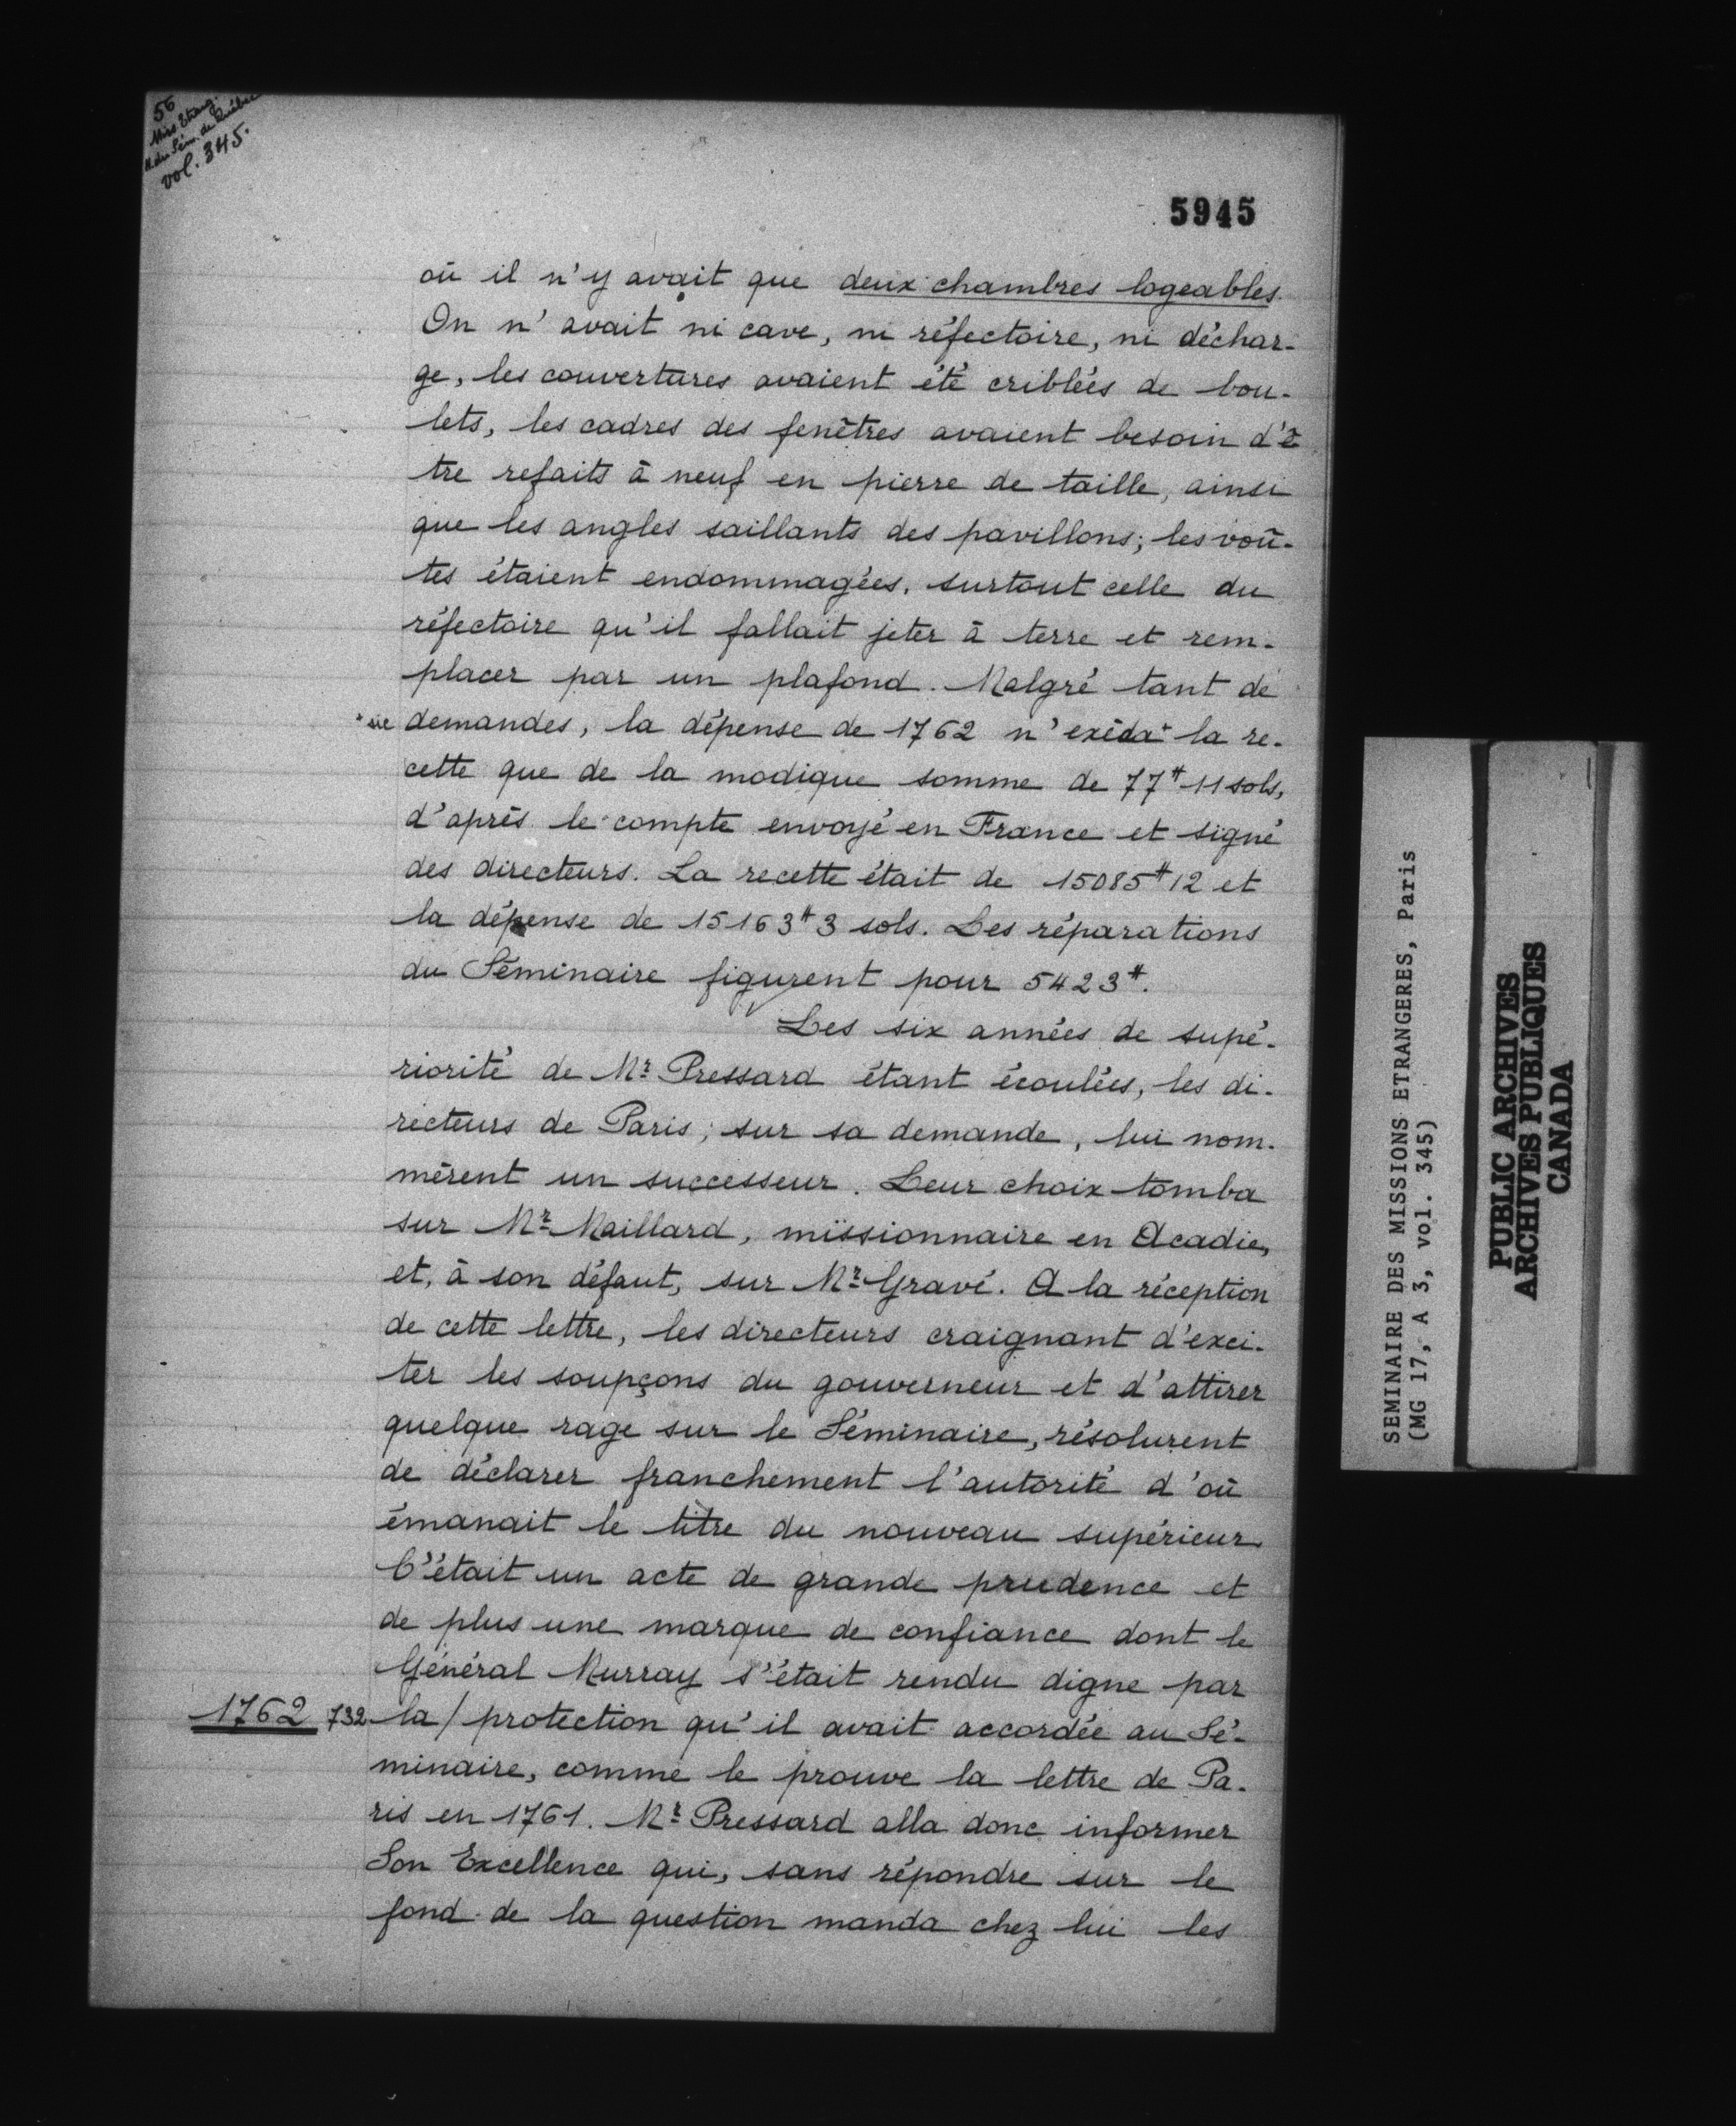 56
Miss Etrang.
M. du Sém. de Québec
vol. 345.
5945
où il n'y avait que deux chambres logeables.
On n'avait ni cave, ni réfectoire, ni déchar-
ge, les couvertures avaient été criblées de bou-
lets, les cadres des fenêtres avaient besoin d'ê
tre refaits à neuf en pierre de taille, ainsi
que les angles saillants des pavillons; les voû-
tes étaient endommagées, surtout celle du
réfectoire qu'il fallait jeter à terre et rem-
placer par un plafond. Malgré tant de
demandes, la dépense de 1762 n'exéda+ la re-
cette que de la modique somme de 77# 11 sols,
d'après le compte envoyé en France et signé
des directeurs. La recette était de 15085# 12 et
la dépense de 15163# 3 sols. Les réparations
du Séminaire figurent pour 5423#.
Les six années de supé-
riorité de Mr Pressard étant écoulées, les di-
recteurs de Paris; sur sa demande, lui nom-
mèrent un successeur. Leur choix tomba
sur Mr Maillard, missionnaire en Acadie,
et, à son défaut, sur Mr Gravé. A la réception
de cette lettre, les directeurs craignant d'exci-
ter les soupçons du gouverneur et d'attirer
quelque rage sur le Séminaire, résolurent
de déclarer franchement l'autorité d'où
émanait le titre du nouveau supérieur
C'était un acte de grande prudence et
de plus une marque de confiance dont le
Général Murray s'était rendu digne par
1762 732 la / protection qu'il avait accordée au Sé-
minaire, comme le prouve la lettre de Pa-
ris en 1761. Mr Pressard alla donc informer
Son Excellence qui, sans répondre sur le
fond de la question manda chez lui les
SEMINAIRE DES MISSIONS ETRANGERES, Paris
(MG 17, A 3, vol. 345)
PUBLIC ARCHIVES
ARCHIVES PUBLIQUES
CANADA